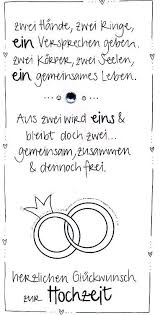 zwei Hände, zwei Ringe,
ein Versprechen geben.
zwei Körper, zwei Seelen,
ein gemeinsames Leben.
Aus zwei wird eins &
bleibt doch zwei...
gemeinsam, zusammen
& dennoch frei.
herzlichen Glückwunsch
zur Hochzeit